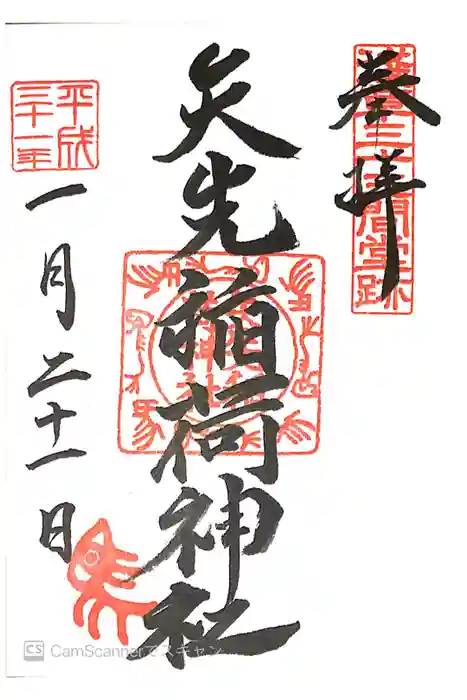 奉拝
浅草三十三間堂跡
矢先稲荷神社
平成
三十一年
一月二十一日
CS CamScannerでスキャン